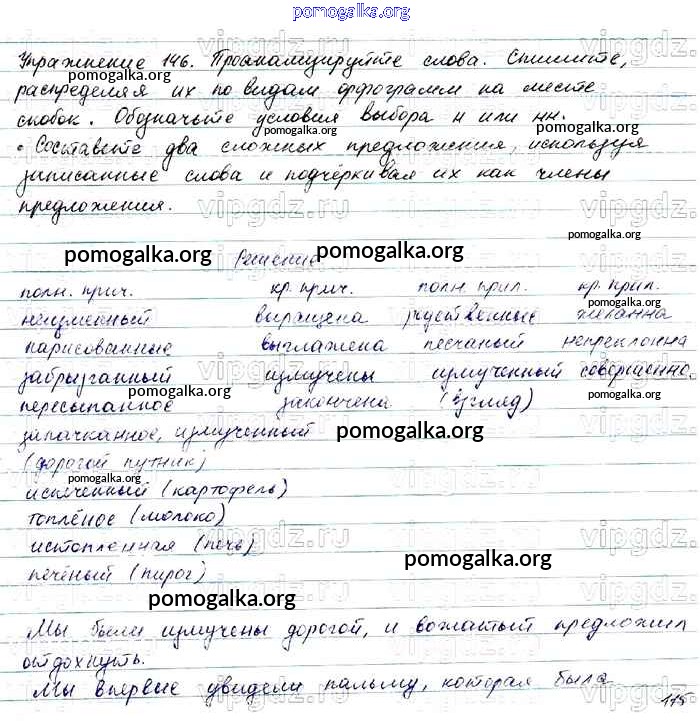 pomogalka.org
Упражнение 146. Проанализируйте слова. Спишите,
pomogalka.org
распределяя их по видам орфограмм на месте
скобок. Обозначьте условия выбора н или нн.
pomogalka.org
• Составьте два сложных предложения, используя
записанные слова и подчёркивая их как члены
предложения.
vipgdz.ru
pomogalka.org
pomogalka.org Решение pomogalka.org
полн. прич. кр. прич. полн. прил. кр. прил.
pomogalka.org
неизменный выращена чуственные желанна
нарисованные выглажена песчаный непреклонна
забрызганный измучены измученный совершенно.
pomogalka.org
пересыпанное закончена (взгляд)
запачканное, измученный pomogalka.org
(дорогой путник)
pomogalka.org
испеченный (картофель)
топлёное (молоко)
истопленная (печь) pomogalka.org
печёный (пирог)
pomogalka.org
Мы были измучены дорогой, и вожатый предложил
отдохнуть.
pomogalka.org
Мы впервые увидели пальму, которая была
115